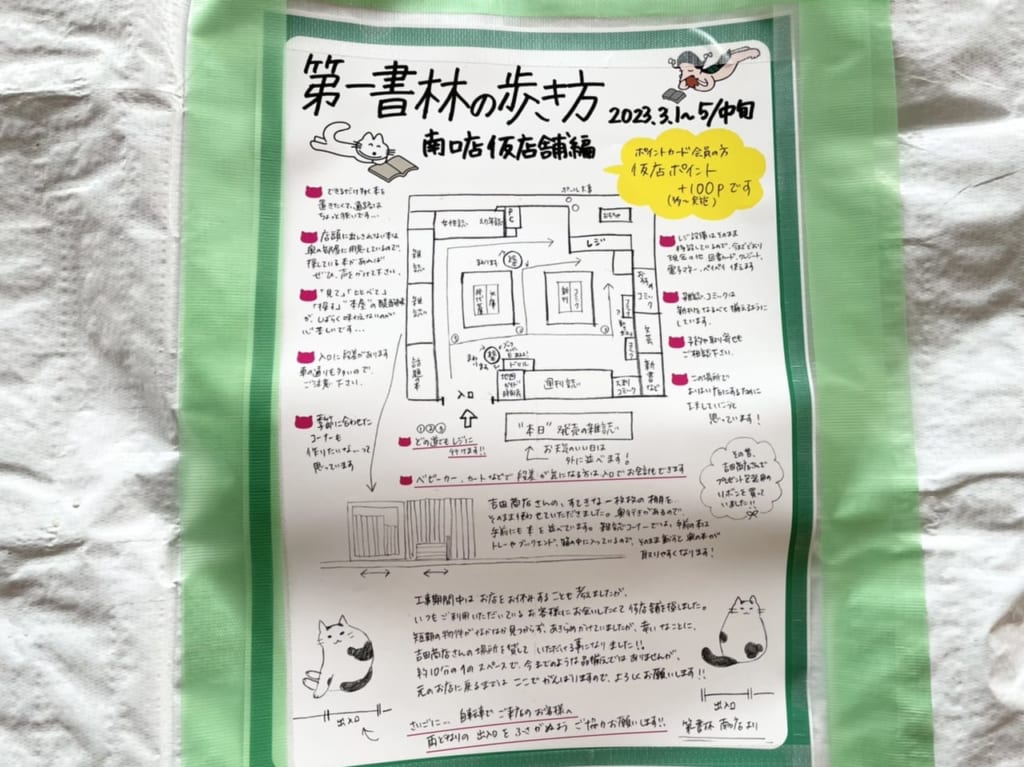 第一書林の歩き方
2023.3.1〜5/中旬
南口店仮店舗編
ポイントカード会員の方
仮店ポイント
+100Pです
できるだけ多く本を
置きたくて、通路は
ちょっと狭いです…
店頭に出しきれない本は
奥の部屋に用意しているので、
探している本があれば
ぜひ、声をかけて下さい。
「見て」「くらべて」
「探す」"本屋"の
がしばらく味わえないのが
心苦しいです…
入口に段差があります
車の通りも多いので、
ご注意下さい。
季節に合わせた
コーナーも
作りたいなーって
思っています
女性誌
幼年誌
PC
レジ
雑誌
雑誌
話題の本
文庫
時代
新刊
コミック
コミック
文芸
新書など
ドリル
地図
ガイド
週刊誌
コミック
入口
レジ設備はそのまま
移設しているので、今までどおり
現金の他 図書カード、クレジット、
電子マネー、ペイペイ 使えます
雑誌、コミックは
新刊をなるべく揃えるように
しています。
予約や取り寄せも
ご相談下さい。
この場所で
思っています!
①②③
どの道でもレジに
行けます!!
"本日"発売の雑誌
お天気のいい日は
外に並べます!
ベビーカー、カートなどで段差が気になる方は入口でお会計もできます
その昔、
吉田商店さんで
プレゼント包装用の
リボンを買って
いました!!
吉田商店さんの、すてきな一枚板の棚を
そのまま使わせていただきました。奥行きがあるので、
手前にも本を並べています。雑誌コーナーでは、手前の本は
トレーやブックエンド、箱の中に入っているので、そのまま動かすと奥の本が
取りやすくなります!
工事期間中はお店をお休みすることも考えましたが、
いつもご利用いただいているお客様にお会いしたくて仮店舗を探しました。
短期の物件がなかなか見つからず、あきらめかけていましたが、幸いなことに、
吉田商店さんの場所を貸していただける事になりました!!
約10分の1のスペースで、今までのような品揃えではありませんが、
元のお店に戻るまではここでがんばりますので、よろしくお願いします!!
出入口
出入口
さいごに… 自転車でご来店のお客様へ
両どなりの出入口をふさがぬようご協力お願いします!!
第一書林 南口店より